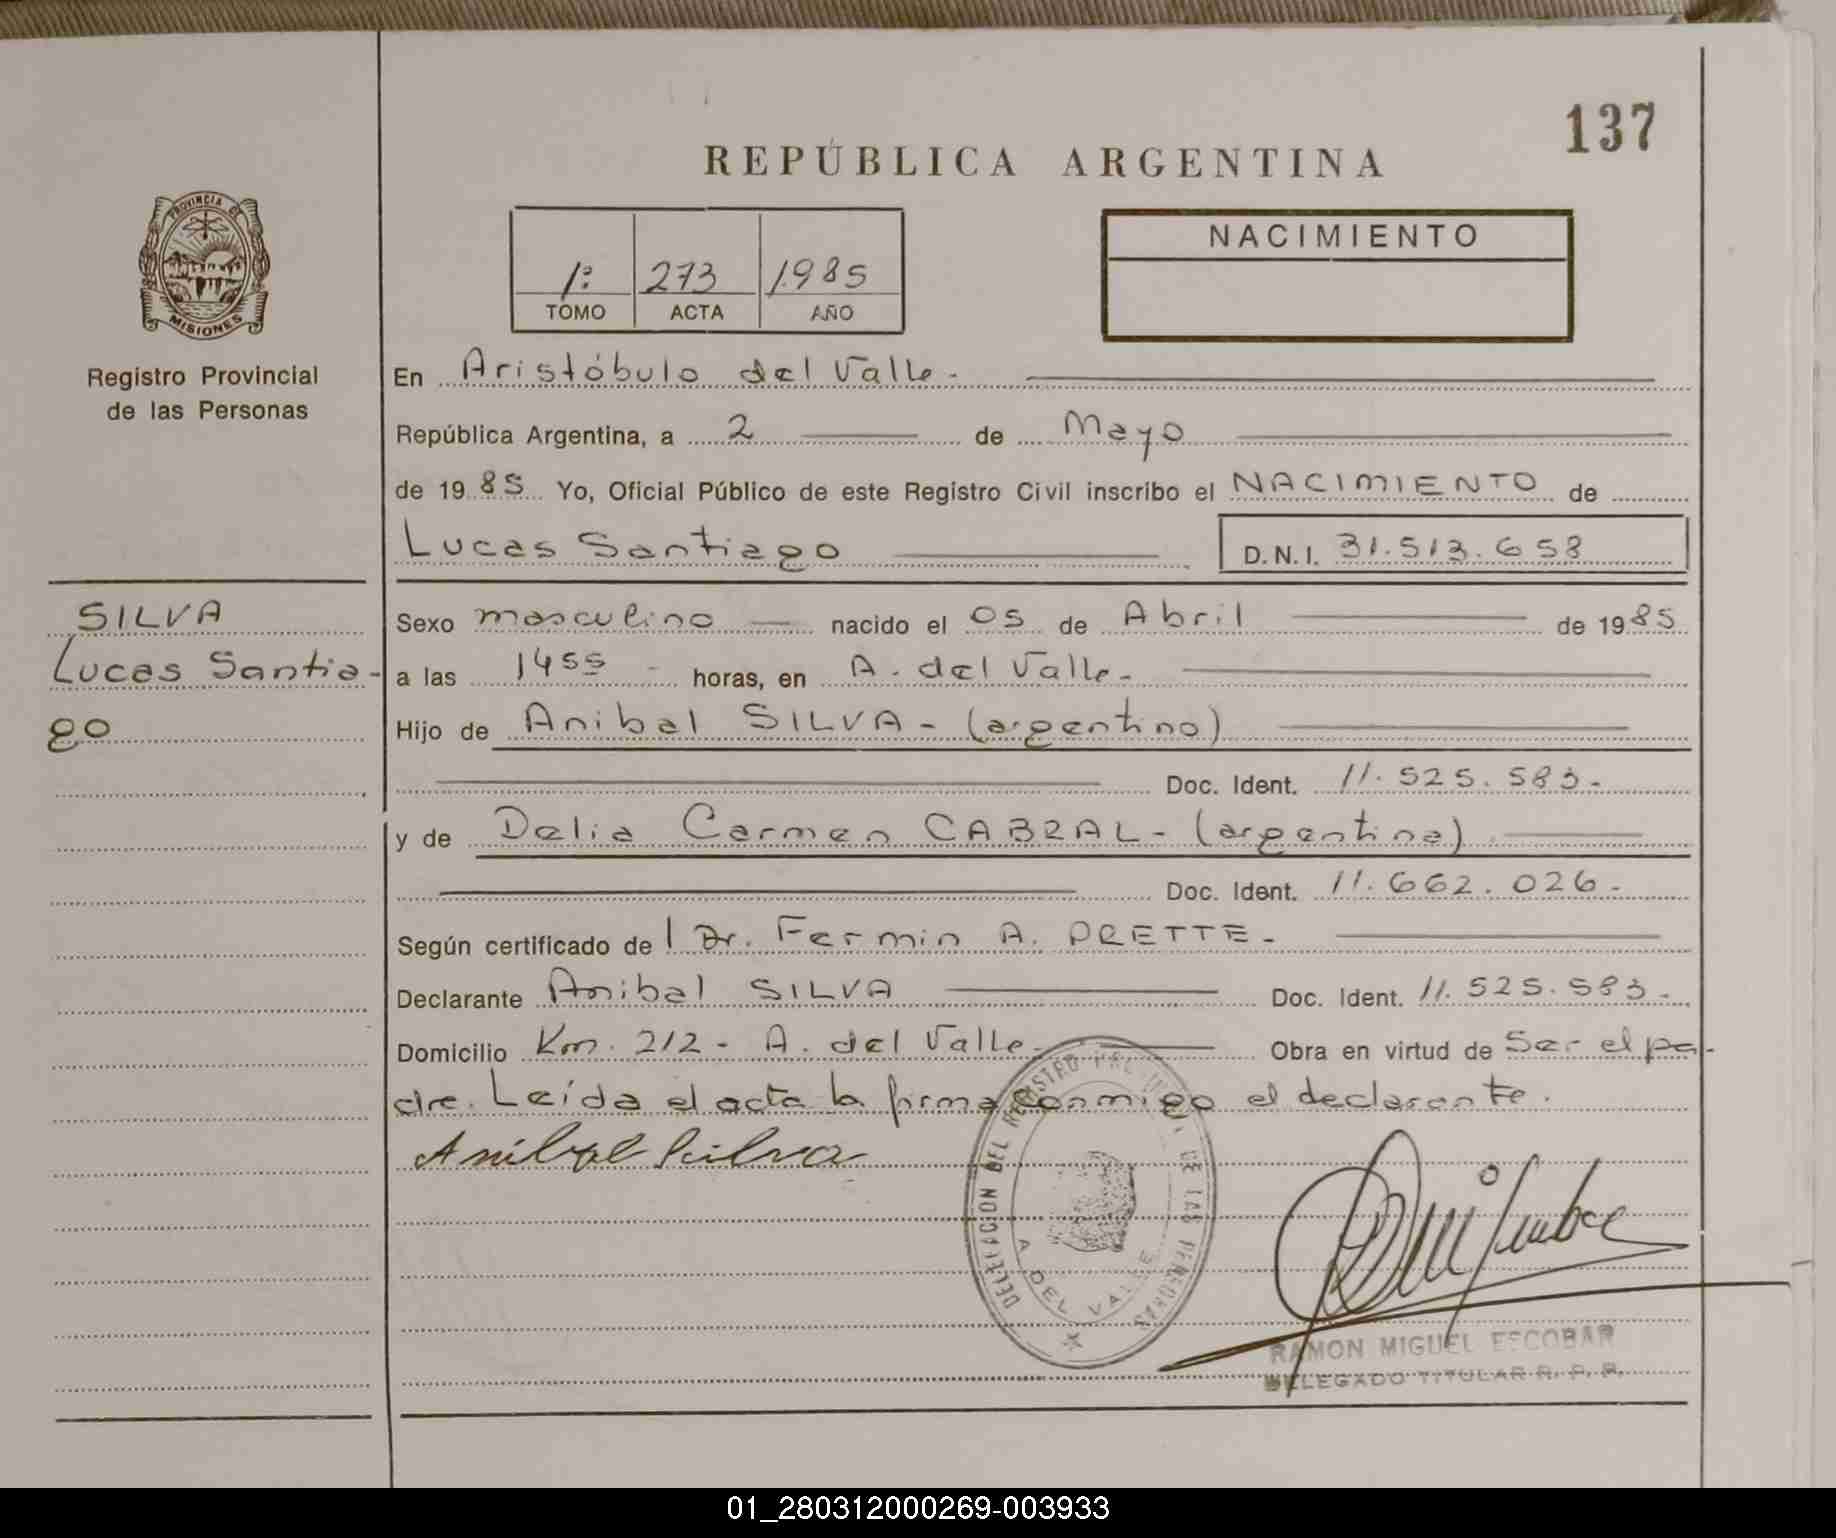 137
REPÚBLICA ARGENTINA
PROVINCIA DE
MISIONES
Registro Provincial
de las Personas
1º 273 1985
TOMO ACTA AÑO
NACIMIENTO
En Aristóbulo del Valle.-
República Argentina, a 2 de Mayo
de 1985 Yo, Oficial Público de este Registro Civil inscribo el NACIMIENTO de
Lucas Santiago D.N.I. 31.513.658
SILVA
Lucas Santia-
go
Sexo masculino nacido el 05 de Abril de 1985
a las 1455 - horas, en A. del Valle.-
Hijo de Anibal SILVA - (argentino)
Doc. Ident. 11.525.583.-
y de Delia Carmen CABRAL - (argentina)
Doc. Ident. 11.662.026.-
Según certificado de Dr. Fermin A. PRETTE.-
Declarante Anibal SILVA Doc. Ident. 11.525.583.-
Domicilio Km. 212 - A. del Valle.- Obra en virtud de Ser el pa-
dre. Leída el acta la firma conmigo el declarante.
Aníbal Silva
DELEGACION DEL REGISTRO PROVINCIAL DE LAS PERSONAS
A. DEL VALLE
RAMON MIGUEL ESCOBAR
DELEGADO TITULAR R. P. P.
01_280312000269-003933